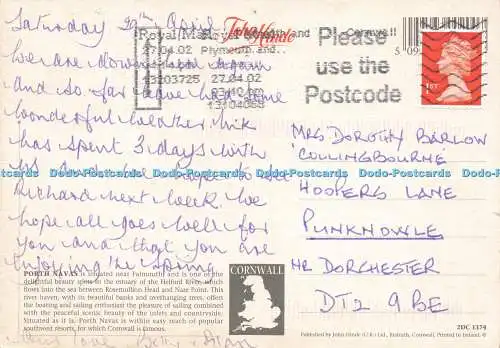 Saturday 27th April
We are down here again
and so far have had some
wonderful weather. Nik
has spent 3 days with
us and we hope to see
Richard next week. We
hope all goes well for
you and that you are
enjoying the spring.
Many love Betty + Alan
John Hinde
Royal Mail
Plymouth and Cornwall
27.04.02
Please
use the
Postcode
1ST
MRS DOROTHY BARLOW
'COLLINGBOURNE'
HOOPERS LANE
PUNKNOWLE
NR DORCHESTER
DT2 9BE
PORTH NAVAS is situated near Falmouth and is one of the
delightful beauty spots in the estuary of the Helford River which
flows into the sea between Rosemullion Head and Nare Point. This
river haven, with its beautiful banks and overhanging trees, offers
the boating and sailing enthusiast the pleasure of sailing combined
with the peaceful scenic beauty of the inlets and countryside.
Situated as it is, Porth Navas is within easy reach of popular
seaside resorts, for which Cornwall is famous.
CORNWALL
2DC 1374
Published by John Hinde (U.K.) Ltd., Redruth, Cornwall. Printed in Ireland.
Postcards Postcards Postcards Postcards